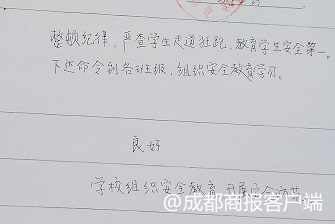 整顿纪律，严查学生走道狂跑，教育学生安全第一。
下达命令到各班级，组织安全教育学习。
良好
学校组织安全教育
@成都商报客户端